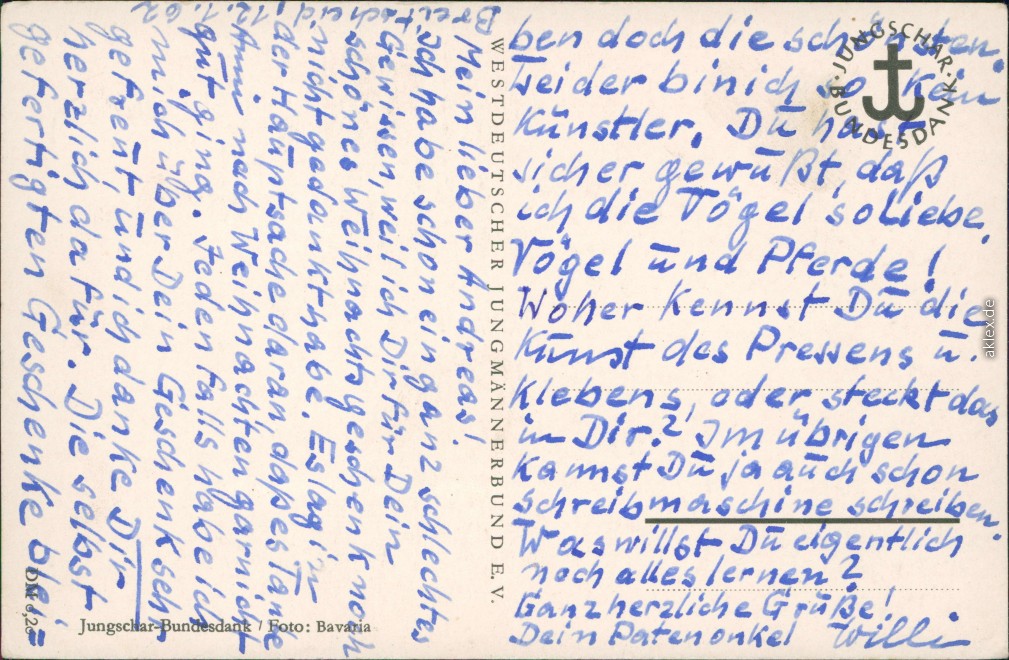 Breitscheid, 12.1.62
Mein lieber Andreas!
Ich habe schon ein ganz schlechtes
Gewissen, weil ich Dir für Dein
schönes Weihnachtsgeschenk noch
nicht gedankt habe. Es lag in
der Hauptsache daran, daß es Tante
Anni nach Weihnachten gar nicht
gut ging. Jedenfalls habe ich
mich über Dein Geschenk sehr
gefreut, und ich danke Dir
herzlich dafür. Die selbst
gefertigten Geschenke blei=
ben doch die schönsten.
Leider bin ich so kein
Künstler. Du hast
sicher gewußt, daß
ich die Vögel so liebe,
Vögel und Pferde!
Woher kennst Du die
Kunst des Pressens u.
Klebens, oder steckt das
in Dir? Im übrigen
kannst Du ja auch schon
schreibmaschine schreiben.
Was willst Du eigentlich
noch alles lernen?
Ganz herzliche Grüße!
Dein Patenonkel Willi
WESTDEUTSCHER JUNGMÄNNERBUND E.V.
· JUNGSCHAR ·
BUNDESDANK
DM 0,20
Jungschar-Bundesdank / Foto: Bavaria
aklex.de